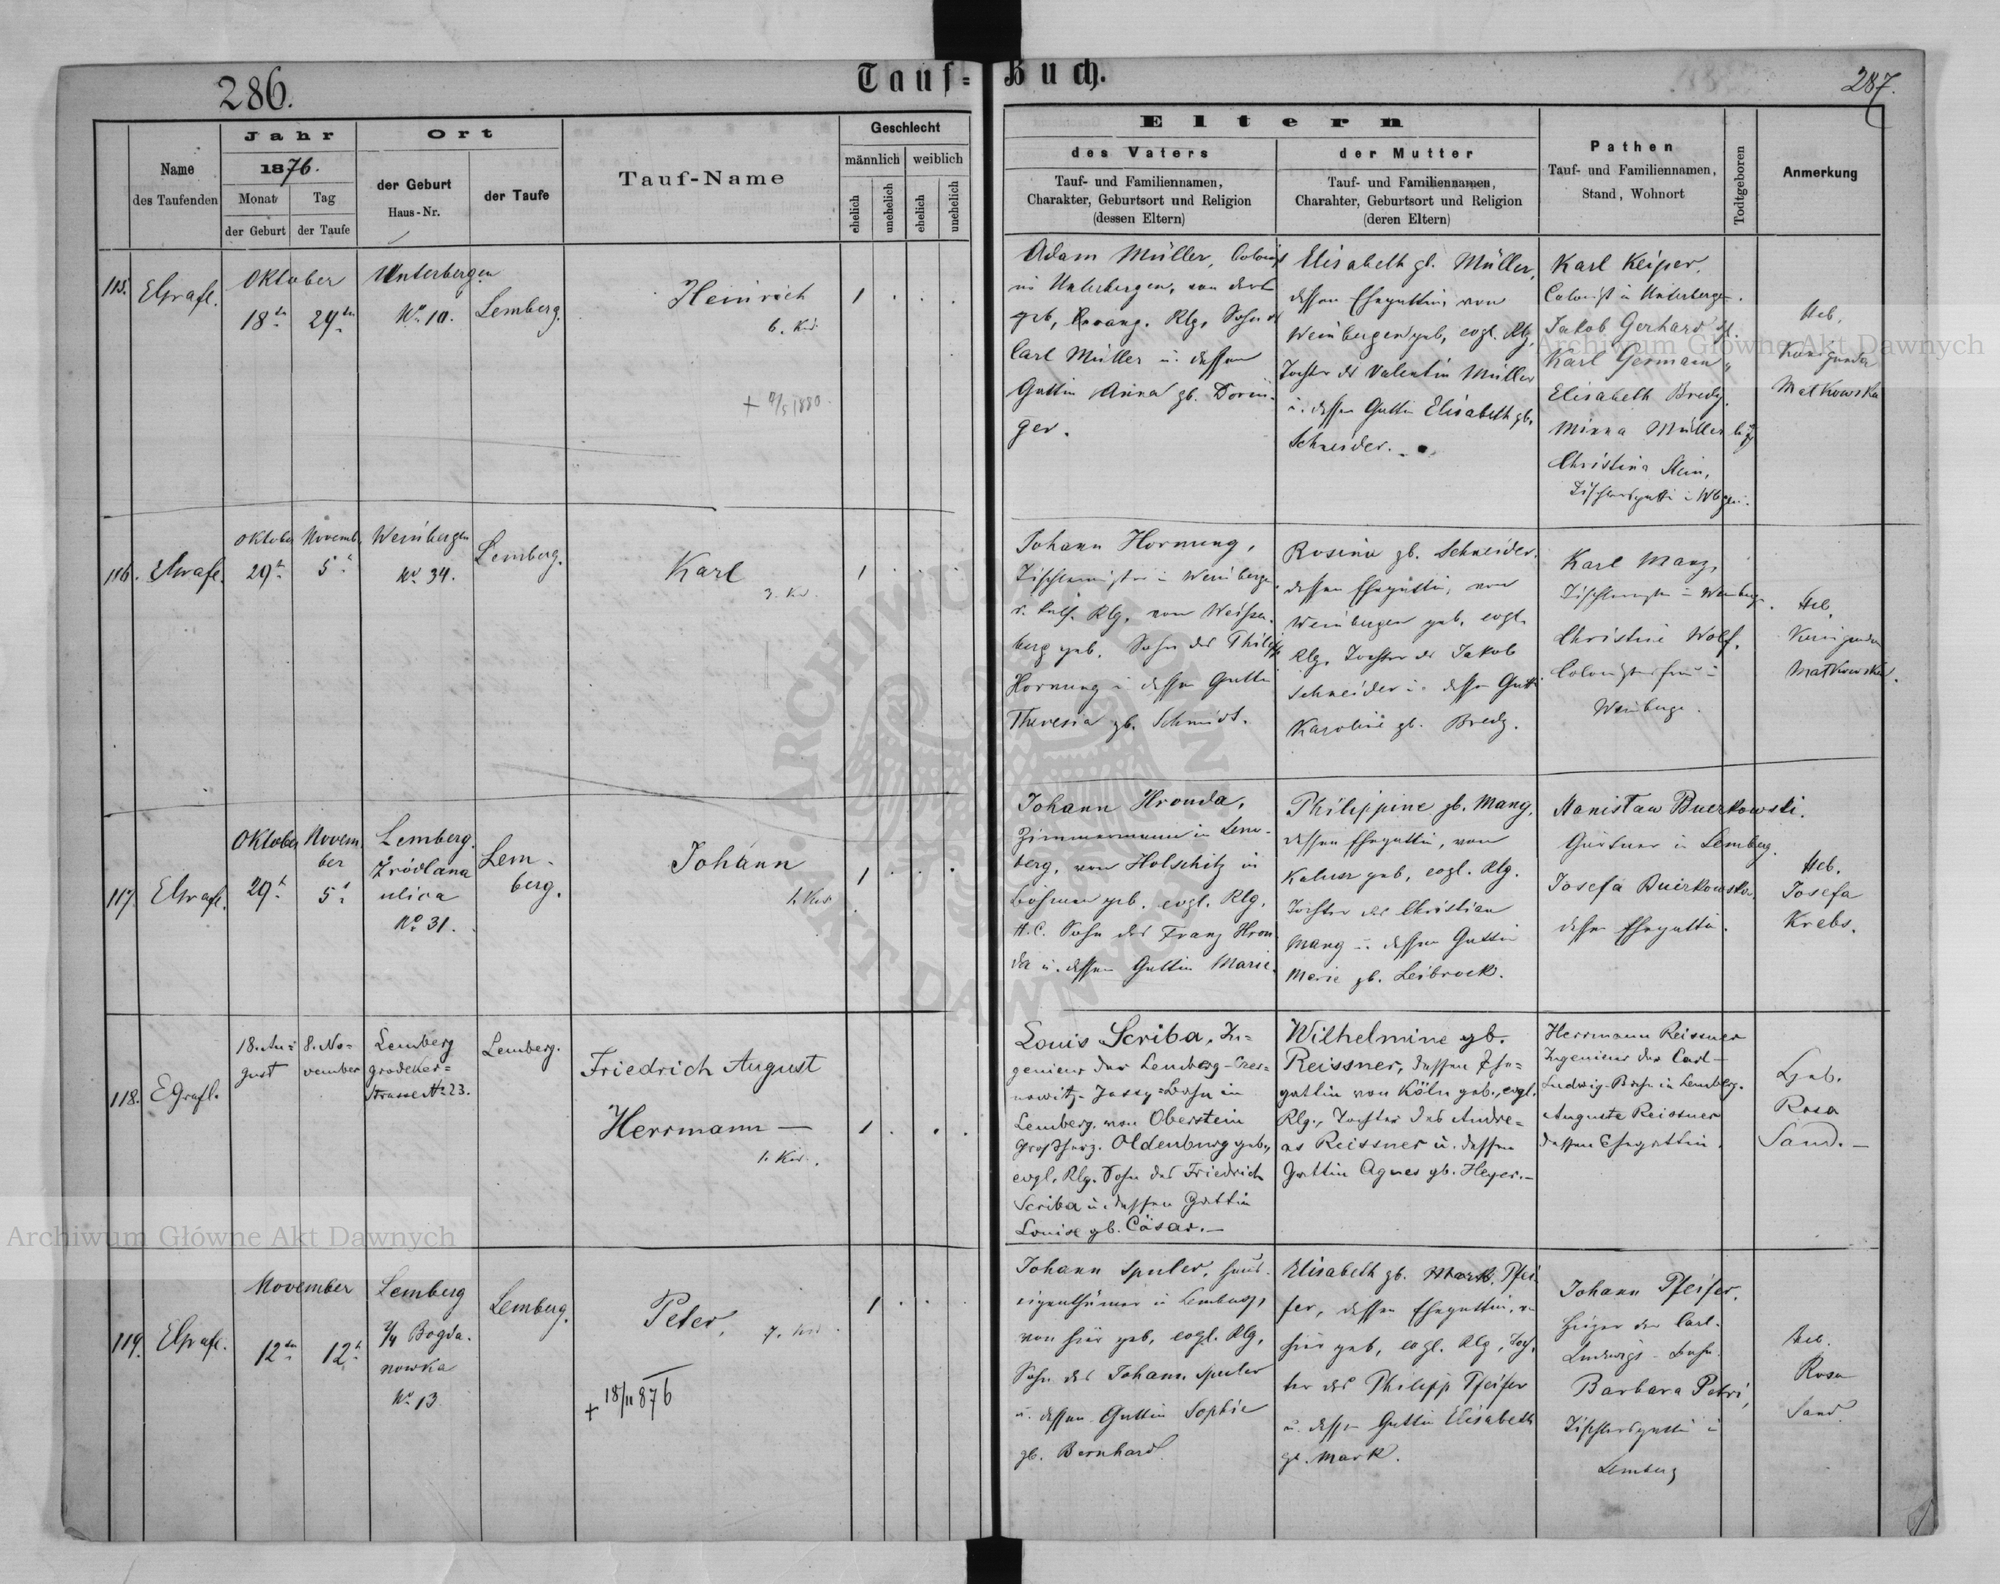 286.
Tauf-Buch.
287.
Name
des Taufenden
Jahr
1876.
Monat
Tag
der Geburt
der Taufe
Ort
der Geburt
Haus-Nr.
der Taufe
Tauf-Name
Geschlecht
männlich
weiblich
ehelich
unehelich
ehelich
unehelich
Eltern
des Vaters
Tauf- und Familiennamen,
Charakter, Geburtsort und Religion
(dessen Eltern)
der Mutter
Tauf- und Familiennamen,
Charahter, Geburtsort und Religion
(deren Eltern)
Pathen
Tauf- und Familiennamen,
Stand, Wohnort
Todtgeboren
Anmerkung
115.
EGrafl.
Oktober
18tn
29tn
Unterbergen
No 10.
Lemberg.
Heinrich
6. Kid.
1
Adam Müller, Colonist
in Unterbergen, von dort
geb, Evang. Rlg, Sohn d
Carl Müller u. dessen
Gattin Anna gb. Dorin-
ger.
Elisabeth gb. Müller,
dessen Ehegattin, von
Weinbergen geb, evgl. Rlg,
Tochter des Valentin Müller
u. dessen Gattin Elisabeth gb.
Schneider.
Karl Keiper,
Colonist in Unterbergen.
Jakob Gerhard
Karl Germann "
Elisabeth Bredy.
Minna Müller
Christina Stein,
Heb.
Kunigunda
Matkowska
116.
EGrafl.
Oktober
29t
Novemb.
5t
Weinbergen
No 34.
Lemberg.
Karl
3. Kid.
1
Johann Hornung,
Tischlermeister in Weinbergen
r. kath. Rlg, von Weissen-
berg geb. Sohn des Philipp
Hornung u dessen Gattin
Theresia gb. Schmidt.
Rosina gb. Schneider,
dessen Ehegattin, von
Weinbergen geb, evgl.
Rlg, Tochter des Jakob
Schneider u. dessen Gattin
Karoline gb. Bredy.
Karl Manz,
Christine Wolf,
Heb.
Kunigunda
Matkowska.
117.
EGrafl.
Oktober
29t
Novem-
ber
5t
Lemberg.
Źródlana
ulica
No 31.
Lem-
berg.
Johann
1. Kid
1
Johann Hronda,
Zimmermann in Lem-
berg, von Holschitz in
Böhmen geb. evgl. Rlg,
H.C. Sohn des Franz Hron
da u. dessen Gattin Marie.
Philippine gb. Mang,
dessen Ehegattin, von
Kalusz geb, evgl. Rlg.
Tochter des Christian
Mang u. dessen Gattin
Marie gb. Leibrock.
Stanisław Buczkowski.
Gärtner in Lemberg.
Josefa Buczkowska,
dessen Ehegattin.
Heb.
Josefa
Krebs.
118.
EGrafl.
18. Au-
gust
8. No-
vember
Lemberg
grodeker-
Strasse No 23.
Lemberg.
Friedrich August
Herrmann —
1. Kid.
1
Louis Scriba, In-
genieur der Lemberg-Czer-
nowitz-Jassy-Bahn in
Lemberg, von Oberstein
Großherz. Oldenburg geb.,
evgl. Rlg. Sohn des Friedrich
Scriba u. dessen Gattin
Louise gb. Cäsar.—
Wilhelmine gb.
Reissner, dessen Ehe-
gattin von Köln geb., evgl.
Rlg., Tochter des Andre-
as Reissner u. dessen
Gattin Agnes gb. Heyer.—
Herrmann Reissner
Ingenieur der Carl-
Ludwig-Bahn in Lemberg.
Auguste Reissner
dessen Ehegattin.
Heb.
Rosa
Sand.—
119.
EGrafl.
November
12tn
12t
Lemberg
2/4 Bogda-
nowka
No 13
Lemberg.
Peter,
7. Kid.
+ 18/11 876
1
Johann Spuler, Haus-
eigenthümer in Lemberg,
von hier geb, evgl. Rlg,
Sohn des Johann Spuler
u. dessen Gattin Sophie
gb. Bernhard.
Elisabeth gb. Mark, Pfei-
fer, dessen Ehegattin, v.
hier geb, evgl. Rlg, Toch-
ter des Philipp Pfeifer
u. dessen Gattin Elisabeth
gb. Mark.
Johann Pfeifer,
Heizer der Carl-
Ludwigs-Bahn.
Barbara Petri,
Tischlersgattin in
Lemberg
Heb.
Rosa
Sand.
Archiwum Główne Akt Dawnych
Archiwum Główne Akt Dawnych
ARCHIWUM GŁÓWNE AKT DAWNYCH